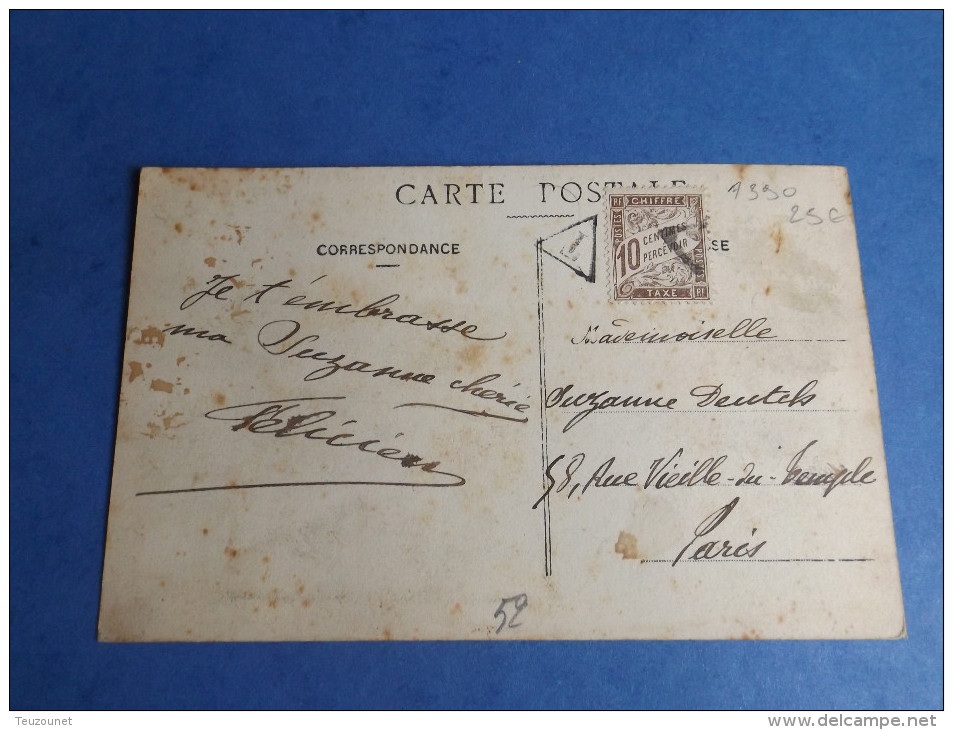 CARTE POSTALE
1390
25 €
CORRESPONDANCE
SE
POSTES
RF
CHIFFRE
10
CENTIMES
PERCEVOIR
POSTES
TAXE
RF
Je t'embrasse
ma Suzanne chérie
Félicien
Mademoiselle
Suzanne Deutch
58, Rue Vieille-du-Temple
Paris
52
Teuzounet
www.delcampe.net